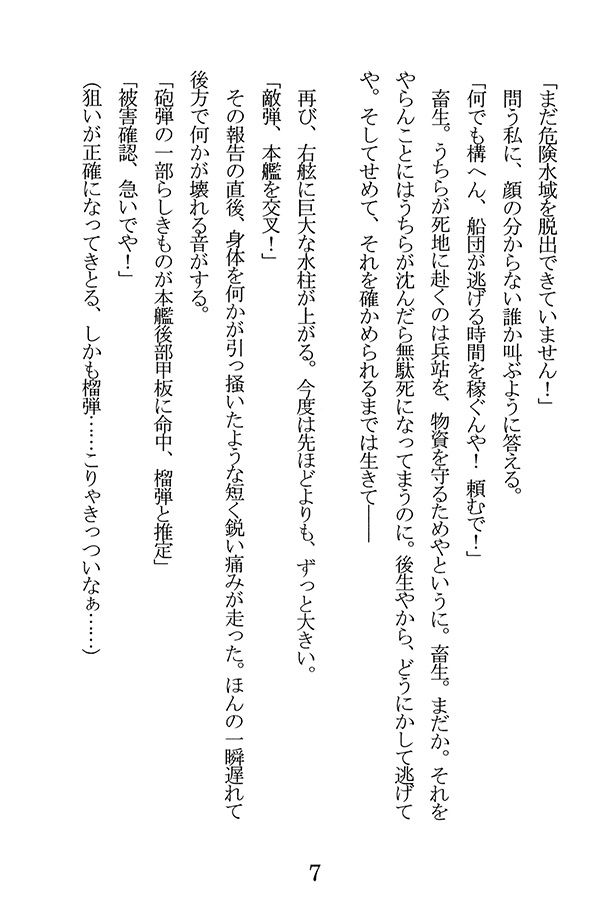 「まだ危険水域を脱出できていません！」
　問う私に、顔の分からない誰か叫ぶように答える。
「何でも構へん、船団が逃げる時間を稼ぐんや！ 頼むで！」
　畜生。うちらが死地に赴くのは兵站を、物資を守るためやというに。畜生。まだか。それを
やらんことにはうちらが沈んだら無駄死になってまうのに。後生やから、どうにかして逃げて
や。そしてせめて、それを確かめられるまでは生きて――
　再び、右舷に巨大な水柱が上がる。今度は先ほどよりも、ずっと大きい。
「敵弾、本艦を交叉！」
　その報告の直後、身体を何かが引っ掻いたような短く鋭い痛みが走った。ほんの一瞬遅れて
後方で何かが壊れる音がする。
「砲弾の一部らしきものが本艦後部甲板に命中、榴弾と推定」
「被害確認、急いでや！」
（狙いが正確になってきとる、しかも榴弾……こりゃきっついなぁ……）
7